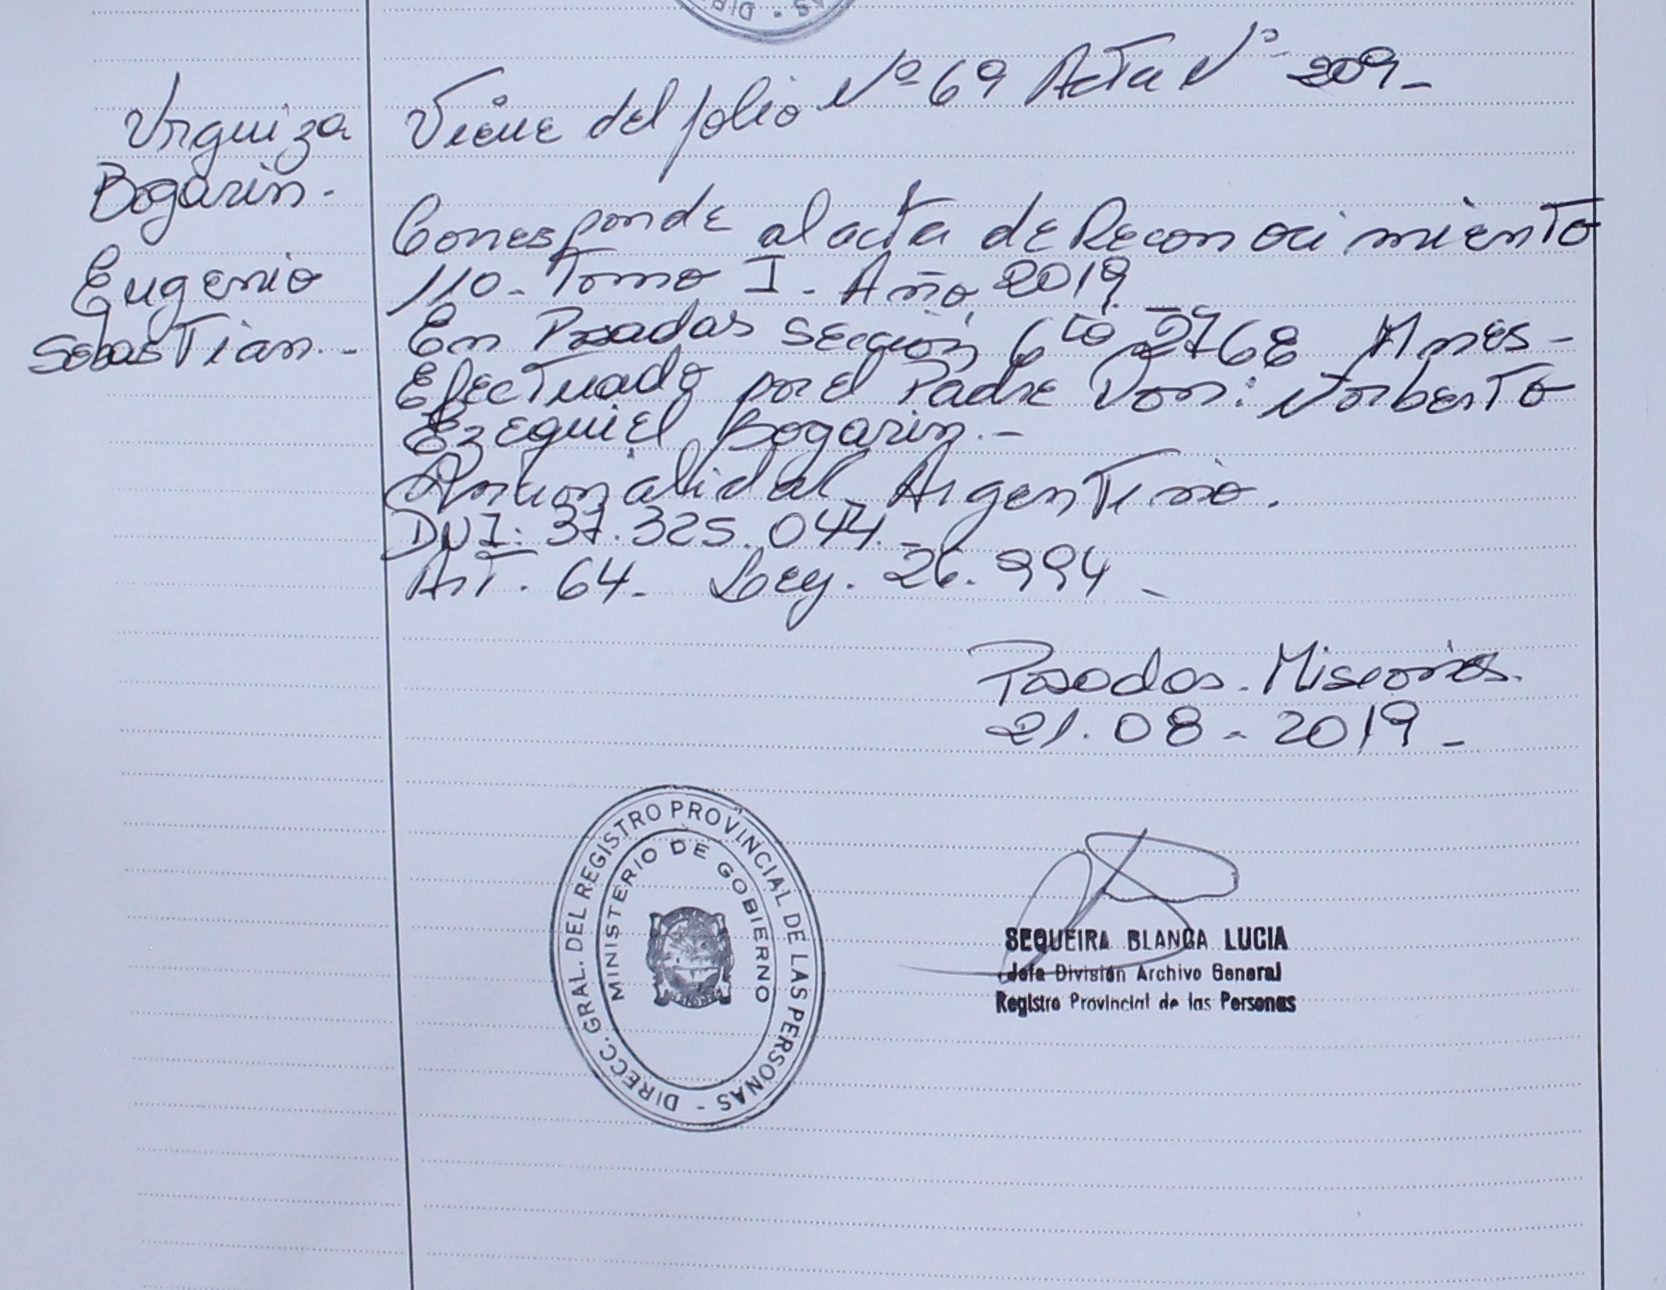 DIR - AS
Viene del folio Nº 69 Acta Nº 209-
Urquiza
Bogarin.
Eugenio
Sebastian.-
Corresponde al acta de Reconocimiento
110- Tomo I. Año 2019
En Posadas sección 6ta 2768 Mnes-
Efectuado por el Padre Don: Norberto
Ezequiel Bogarin.-
Nacionalidad Argentino.
DNI: 37.325.044.-
Art. 64- Ley. 26.994-
Posadas. Misiones.
21.08-2019-
DIRECC. GRAL. DEL REGISTRO PROVINCIAL DE LAS PERSONAS -
MINISTERIO DE GOBIERNO
MISIONES
SEQUEIRA BLANCA LUCIA
Jefa División Archivo General
Registro Provincial de las Personas